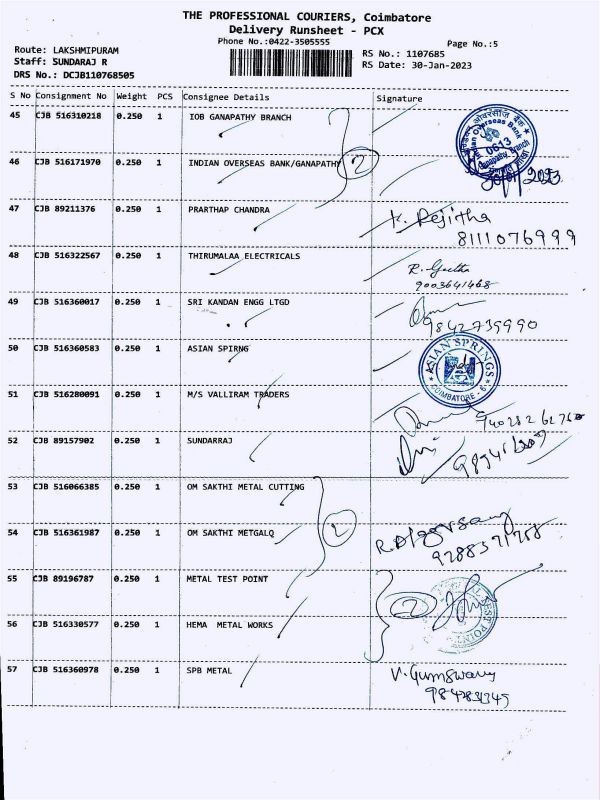 THE PROFESSIONAL COURIERS, Coimbatore
Delivery Runsheet - PCX
Phone No.:0422-3505555
Page No.:5
Route: LAKSHMIPURAM
RS No.: 1107685
Staff: SUNDARAJ R
RS Date: 30-Jan-2023
DRS No.: DCJB110768505
S No Consignment No Weight PCS Consignee Details Signature
45 CJB 516310218 0.250 1 IOB GANAPATHY BRANCH
46 CJB 516171970 0.250 1 INDIAN OVERSEAS BANK/GANAPATHY 2
47 CJB 89211376 0.250 1 PRARTHAP CHANDRA K. Rejitha
8111076999
48 CJB 516322567 0.250 1 THIRUMALAA ELECTRICALS R. Geetha
9003641468
49 CJB 516360017 0.250 1 SRI KANDAN ENGG LTGD
9842739990
50 CJB 516360583 0.250 1 ASIAN SPIRNG ASIAN SPRINGS
COIMBATORE - 6
51 CJB 516280091 0.250 1 M/S VALLIRAM TRADERS
52 CJB 89157902 0.250 1 SUNDARRAJ
53 CJB 516066385 0.250 1 OM SAKTHI METAL CUTTING
54 CJB 516361987 0.250 1 OM SAKTHI METGALQ 2
55 CJB 89196787 0.250 1 METAL TEST POINT 2
56 CJB 516330577 0.250 1 HEMA METAL WORKS
57 CJB 516360978 0.250 1 SPB METAL